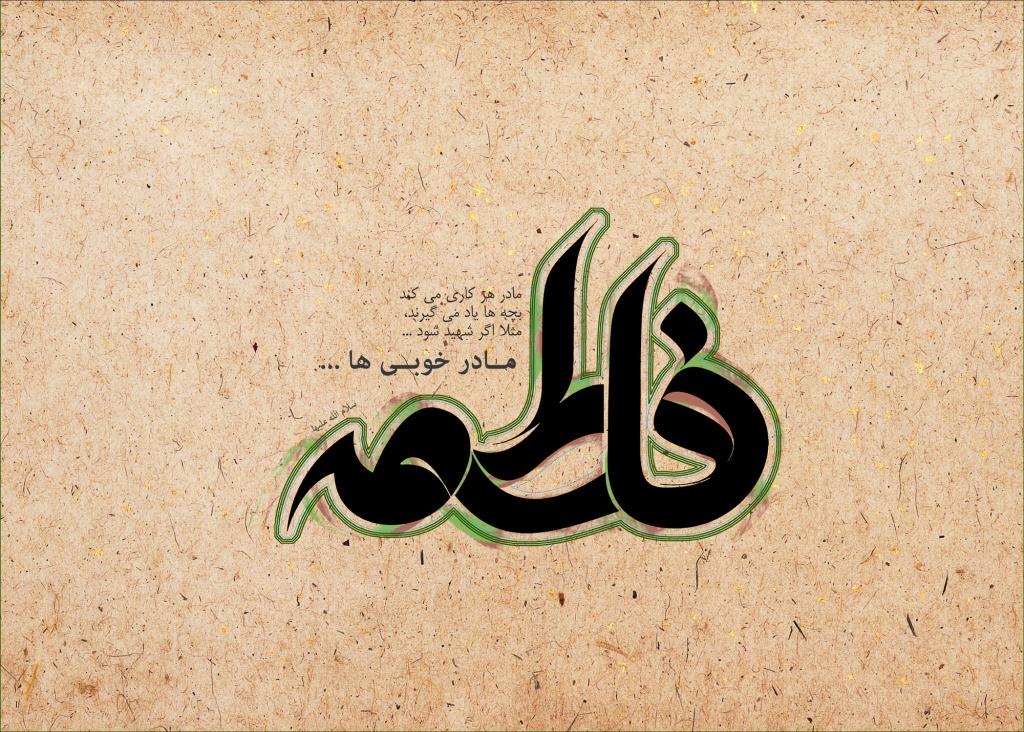 مادر هر کاری می کند
بچه ها یاد می گیرند،
مثلا اگر شهید شود ...
مادر خوبی ها ...
سلام الله علیها
فاطمه